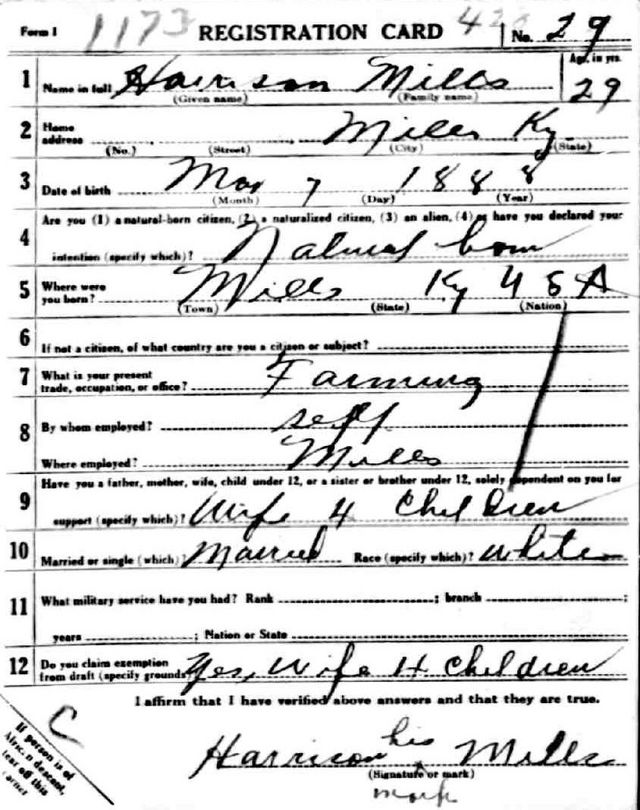 Form 1 1173 REGISTRATION CARD 42 No. 29
1 Name in full Harrison Mills Age, in yrs. 29
(Given name) (Family name)
2 Home address Mills Ky
(No.) (Street) (City) (State)
3 Date of birth Mar 7 1888
(Month) (Day) (Year)
Are you (1) a natural-born citizen, (2) a naturalized citizen, (3) an alien, (4) or have you declared your
4 intention (specify which)? Natural born
5 Where were you born? Mills Ky U S A
(Town) (State) (Nation)
6 If not a citizen, of what country are you a citizen or subject?
7 What is your present trade, occupation, or office? Farming
8 By whom employed? self
Where employed? Mills
9 Have you a father, mother, wife, child under 12, or a sister or brother under 12, solely dependent on you for
support (specify which)? Wife 4 Children
10 Married or single (which)? Married Race (specify which)? White
11 What military service have you had? Rank ; branch ;
years ; Nation or State
12 Do you claim exemption from draft (specify grounds)? Yes, Wife 4 Children
I affirm that I have verified above answers and that they are true.
C
If person is of
African descent,
tear off this
corner
Harrison his Mills
(Signature or mark)
mark